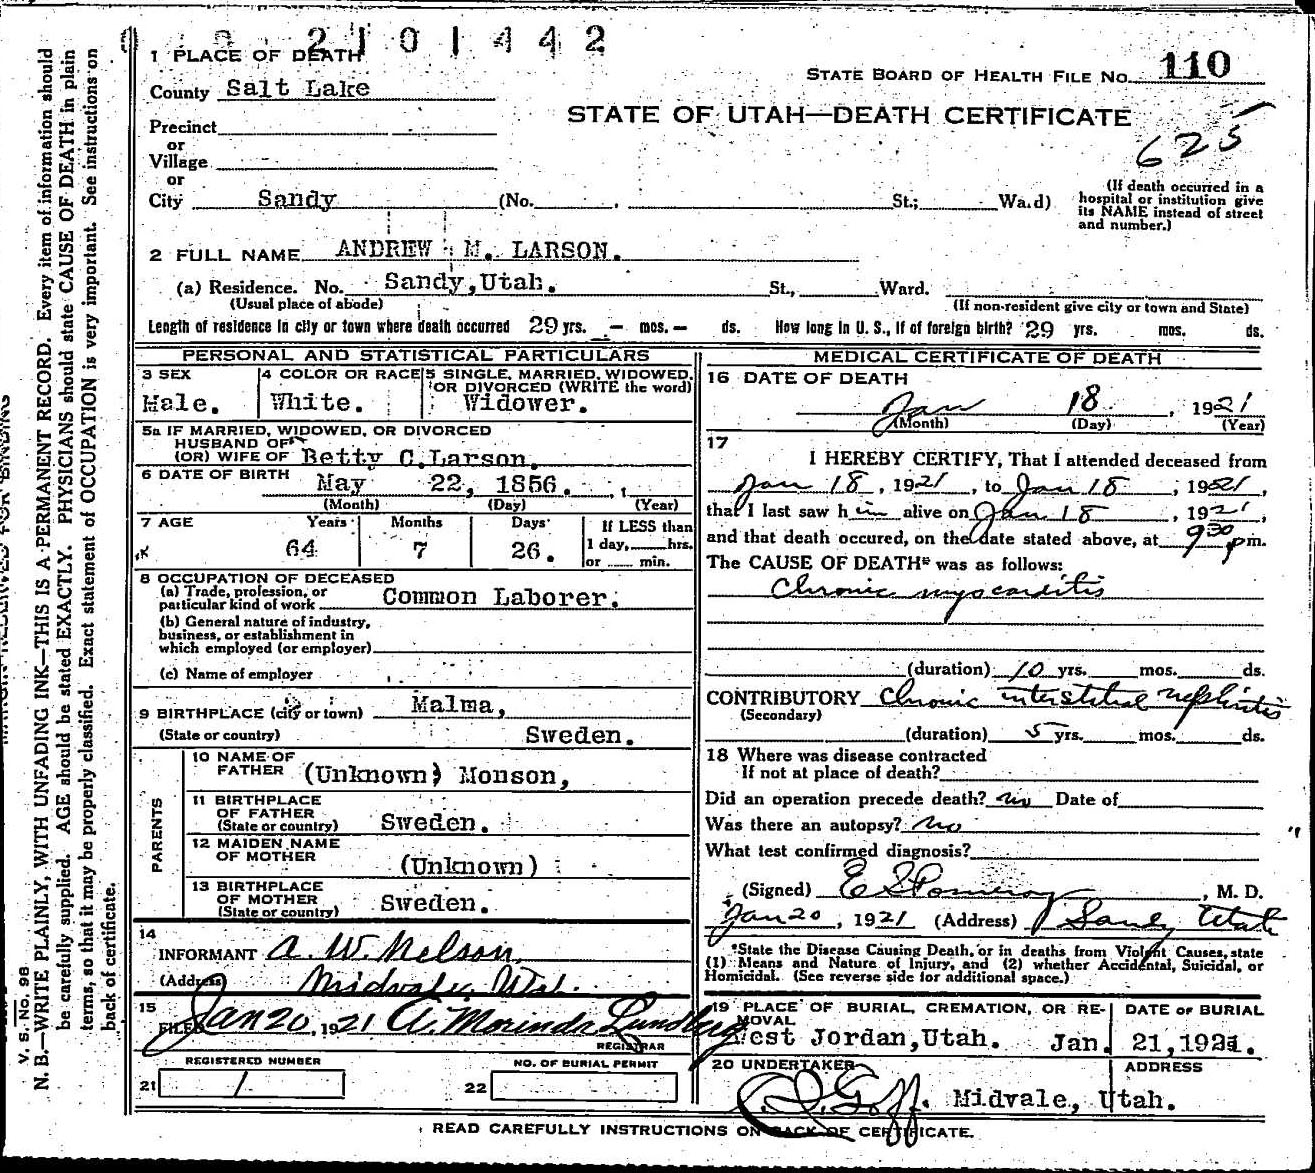 2101442
1 PLACE OF DEATH
STATE BOARD OF HEALTH FILE NO. 110
County Salt Lake
STATE OF UTAH—DEATH CERTIFICATE
625
Precinct
or
Village
or
City Sandy (No. , St.; Ward)
(If death occurred in a
hospital or institution give
its NAME instead of street
and number.)
2 FULL NAME ANDREW M. LARSON.
(a) Residence. No. Sandy, Utah. St., Ward.
(Usual place of abode) (If non-resident give city or town and State)
Length of residence in city or town where death occurred 29 yrs. — mos. — ds. How long in U. S., if of foreign birth? 29 yrs. mos. ds.
PERSONAL AND STATISTICAL PARTICULARS
3 SEX
Male.
4 COLOR OR RACE
White.
5 SINGLE, MARRIED, WIDOWED,
OR DIVORCED (WRITE the word)
Widower.
5a IF MARRIED, WIDOWED, OR DIVORCED
HUSBAND OF
(OR) WIFE OF Betty C. Larson.
6 DATE OF BIRTH May 22, 1856.
(Month) (Day) (Year)
7 AGE Years Months Days If LESS than
64 7 26. 1 day, hrs.
or min.
8 OCCUPATION OF DECEASED
(a) Trade, profession, or
particular kind of work Common Laborer.
(b) General nature of industry,
business, or establishment in
which employed (or employer)
(c) Name of employer
9 BIRTHPLACE (city or town) Malma,
(State or country) Sweden.
PARENTS
10 NAME OF
FATHER (Unknown) Monson,
11 BIRTHPLACE
OF FATHER
(State or country) Sweden.
12 MAIDEN NAME
OF MOTHER (Unknown)
13 BIRTHPLACE
OF MOTHER
(State or country) Sweden.
14
INFORMANT A. W. Nelson.
(Address) Midvale, Utah.
15
FILED Jan 20, 1921 A. Morinda Lundberg
REGISTRAR
REGISTERED NUMBER
21 1
NO. OF BURIAL PERMIT
22
MEDICAL CERTIFICATE OF DEATH
16 DATE OF DEATH
Jan 18, 1921
(Month) (Day) (Year)
17
I HEREBY CERTIFY, That I attended deceased from
Jan 18, 1921, to Jan 18, 1921,
that I last saw him alive on Jan 18, 1921,
and that death occured, on the date stated above, at 9 30 pm.
The CAUSE OF DEATH* was as follows:
Chronic myocarditis
(duration) 10 yrs. mos. ds.
CONTRIBUTORY Chronic interstitial nephritis
(Secondary)
(duration) 5 yrs. mos. ds.
18 Where was disease contracted
If not at place of death?
Did an operation precede death? no Date of
Was there an autopsy? no
What test confirmed diagnosis?
(Signed) E S Pomeroy, M. D.
Jan 20, 1921 (Address) Sandy Utah
*State the Disease Causing Death, or in deaths from Violent Causes, state
(1) Means and Nature of Injury, and (2) whether Accidental, Suicidal, or
Homicidal. (See reverse side for additional space.)
19 PLACE OF BURIAL, CREMATION, OR RE-
MOVAL
West Jordan, Utah.
DATE OF BURIAL
Jan. 21, 1921.
20 UNDERTAKER
Goff.
ADDRESS
Midvale, Utah.
READ CAREFULLY INSTRUCTIONS ON BACK OF CERTIFICATE.
V. S. No. 98
N. B.—WRITE PLAINLY, WITH UNFADING INK—THIS IS A PERMANENT RECORD. Every item of information should
be carefully supplied. AGE should be stated EXACTLY. PHYSICIANS should state CAUSE OF DEATH in plain
terms, so that it may be properly classified. Exact statement of OCCUPATION is very important. See instructions on
back of certificate.